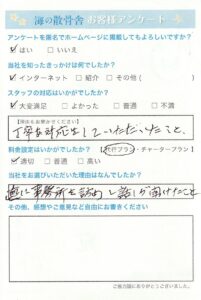 海の散骨舎 お客様アンケート
アンケートを匿名でホームページに掲載してもよろしいですか？
✓はい □いいえ
当社を知ったきっかけは何でしたか？
✓インターネット □紹介 □その他（ ）
スタッフの対応はいかがでしたか？
✓大変満足 □よかった □普通 □不満
丁寧な対応をしていただいたこと、
料金設定はいかがでしたか？ 代行プラン・チャータープラン
✓適切 □普通 □高い
当社をお選びいただいた理由はなんでしたか？
直に事務所を訪問し話しが聞けたこと
その他、感想やご意見など自由にお書きください
ご協力誠にありがとうございました。